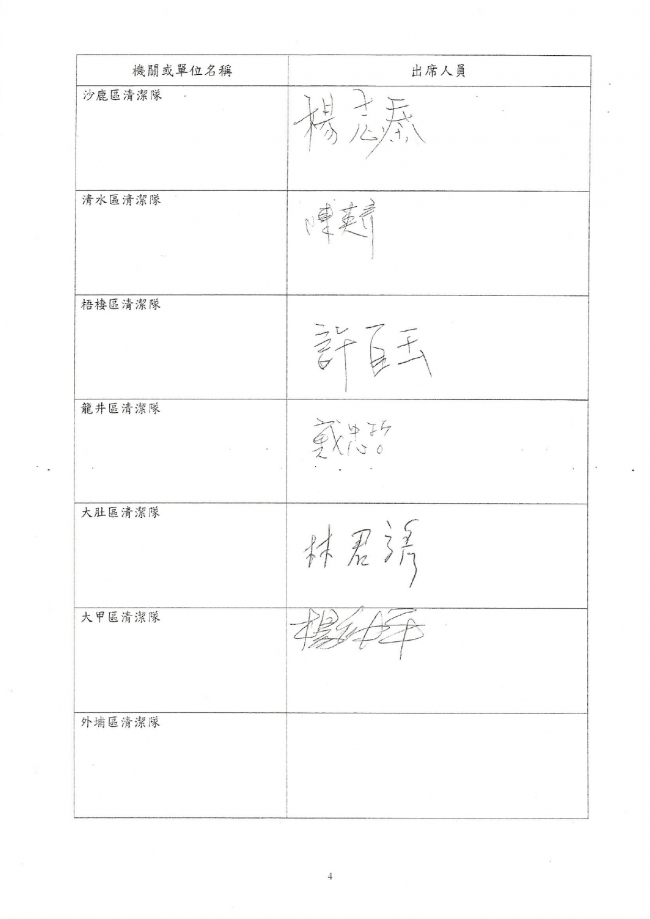 機關或單位名稱
出席人員
沙鹿區清潔隊
楊志泰
清水區清潔隊
陳英彥
梧棲區清潔隊
許百玉
龍井區清潔隊
戴忠哲
大肚區清潔隊
林君諺
大甲區清潔隊
楊
外埔區清潔隊
4